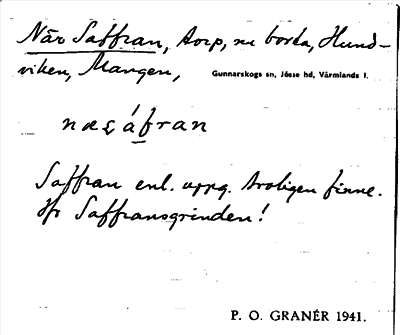 När Saffran, torp, nu borta, Hund-
viken, Mangen, Gunnarskogs sn, Jösse hd, Värmlands l.
Saffran enl. uppg. troligen finne.
Jfr Saffransgrinden!
P. O. GRANÉR 1941.